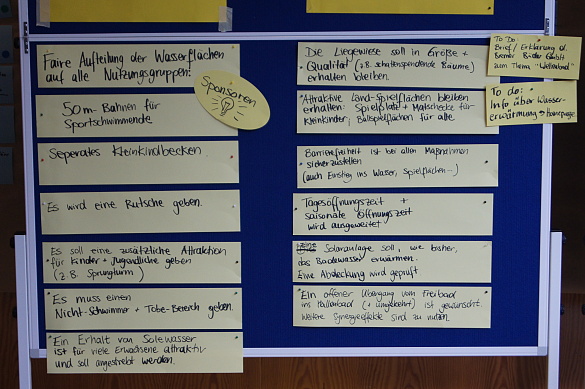 Faire Aufteilung der Wasserflächen
auf alle Nutzungsgruppen:
Sponsoren
50m-Bahnen für
Sportschwimmende
Seperates Kleinkindbecken.
Es wird eine Rutsche geben.
Es soll eine zusätzliche Attraktion
für Kinder + Jugendliche geben
(z.B. Sprungturm)
Es muss einen
Nicht-Schwimmer + Tobe-Bereich geben.
Ein Erhalt von Solewasser
ist für viele Erwachsene attraktiv
und soll angestrebt werden.
Die Liegewiese soll in Größe +
Qualität (z.B. schattenspendende Bäume)
erhalten bleiben.
Attraktive Land-Spielflächen bleiben
erhalten: Spielplatz + Matschecke für
Kleinkinder, Ballspielflächen für alle
Barrierefreiheit ist bei allen Maßnahmen
sicherzustellen
(auch Einstieg ins Wasser, Spielflächen...)
Tagesöffnungszeit +
saisonale Öffnungszeit
wird ausgeweitet
Solaranlage soll, wie bisher,
das Badewasser erwärmen.
Eine Abdeckung wird geprüft
Ein offener Übergang vom Freibad
ins Hallenbad (+ umgekehrt) ist gewünscht.
Weitere Synergieeffekte sind zu nutzen.
To Do:
Brief / Erklärung d.
Bremer Bäder GmbH
zum Thema "Wellenbad"
To do:
Info über Wasser-
erwärmung → Homepage